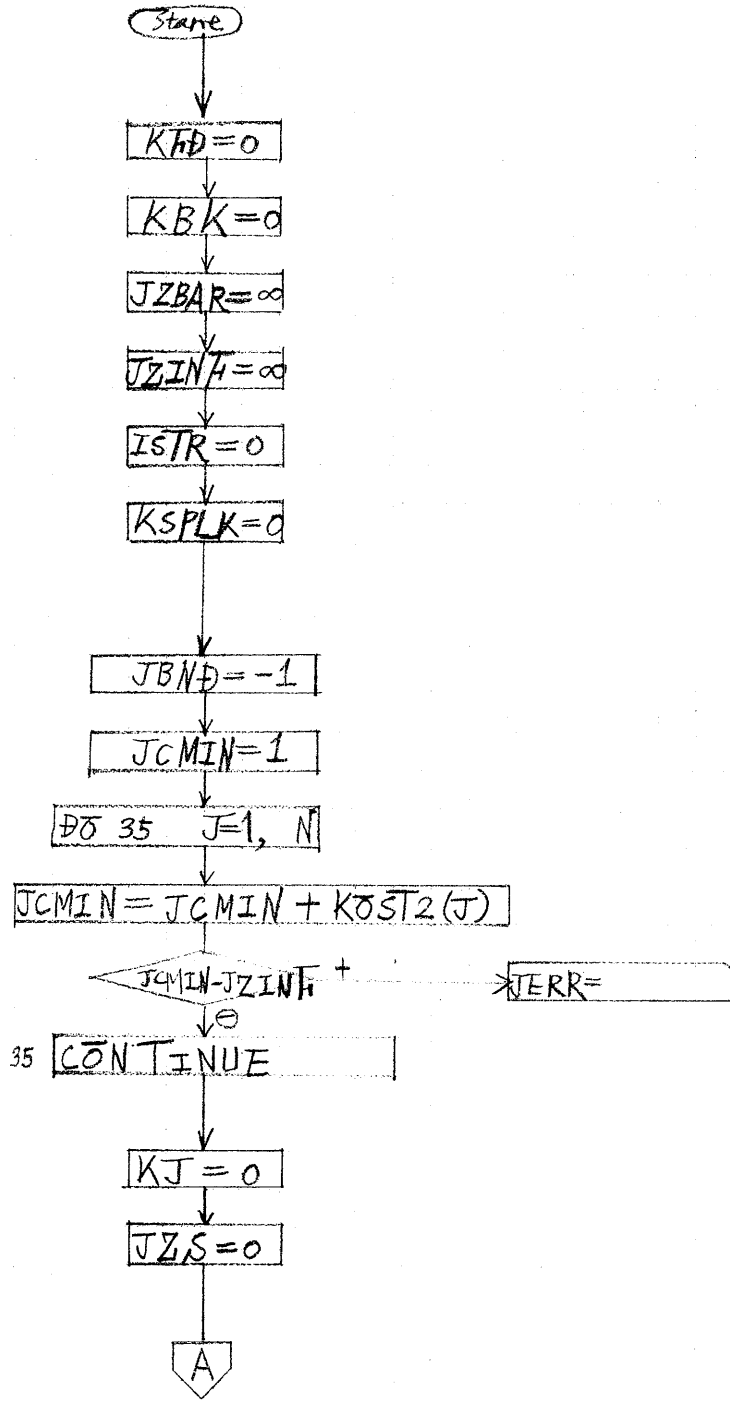 KFD=0
KBK=0
JZBAR=∞
JZINF=∞
ISTR=0
KSPLK=0
JBND=-1
JCMIN=1
DO 35 J=1, N
JCMIN=JCMIN+KOST2(J)
JCMIN-JZINF +
JERR=
⊖
35 CONTINUE
KJ=0
JZS=0
A